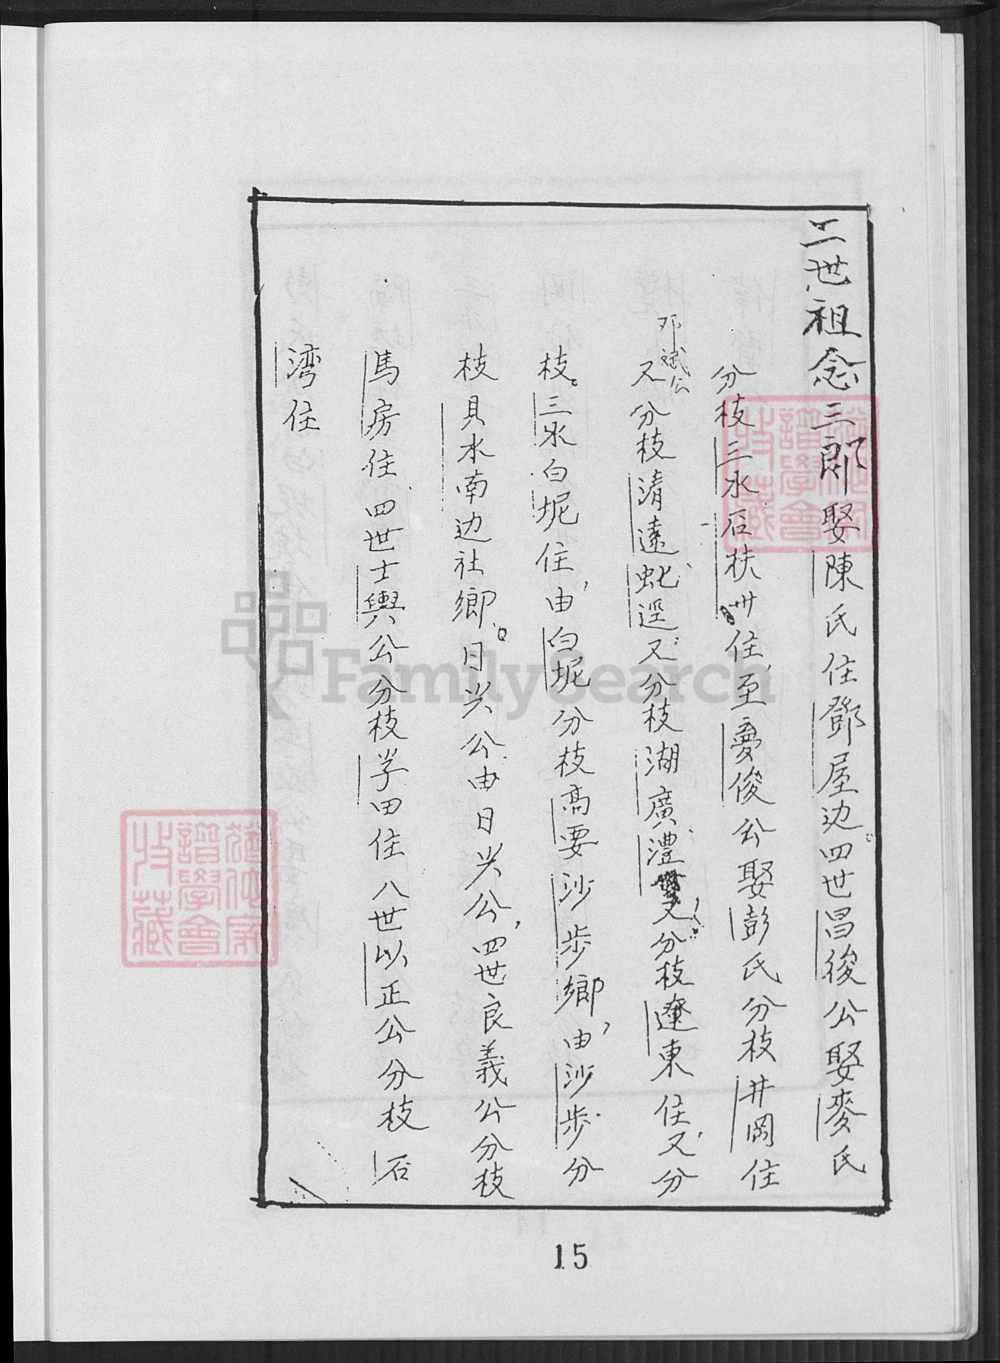 二世祖念三郎娶陳氏住鄧屋边四世昌俊公娶麥氏
分枝三水石扶卅住至憂俊公娶彭氏分枝井岡住
邓斌公
又分枝清遠虵逕又分枝湖廣澧又分枝遼東住又分
枝三水白坭住由白坭分枝高要沙步鄉由沙步分
枝具水南边社鄉日兴公由日兴公四世良義公分枝
馬房住四世士輿公分枝学田住八世以正公分枝石
湾住
15
FamilySearch
譜學會
收藏
譜學會
收藏